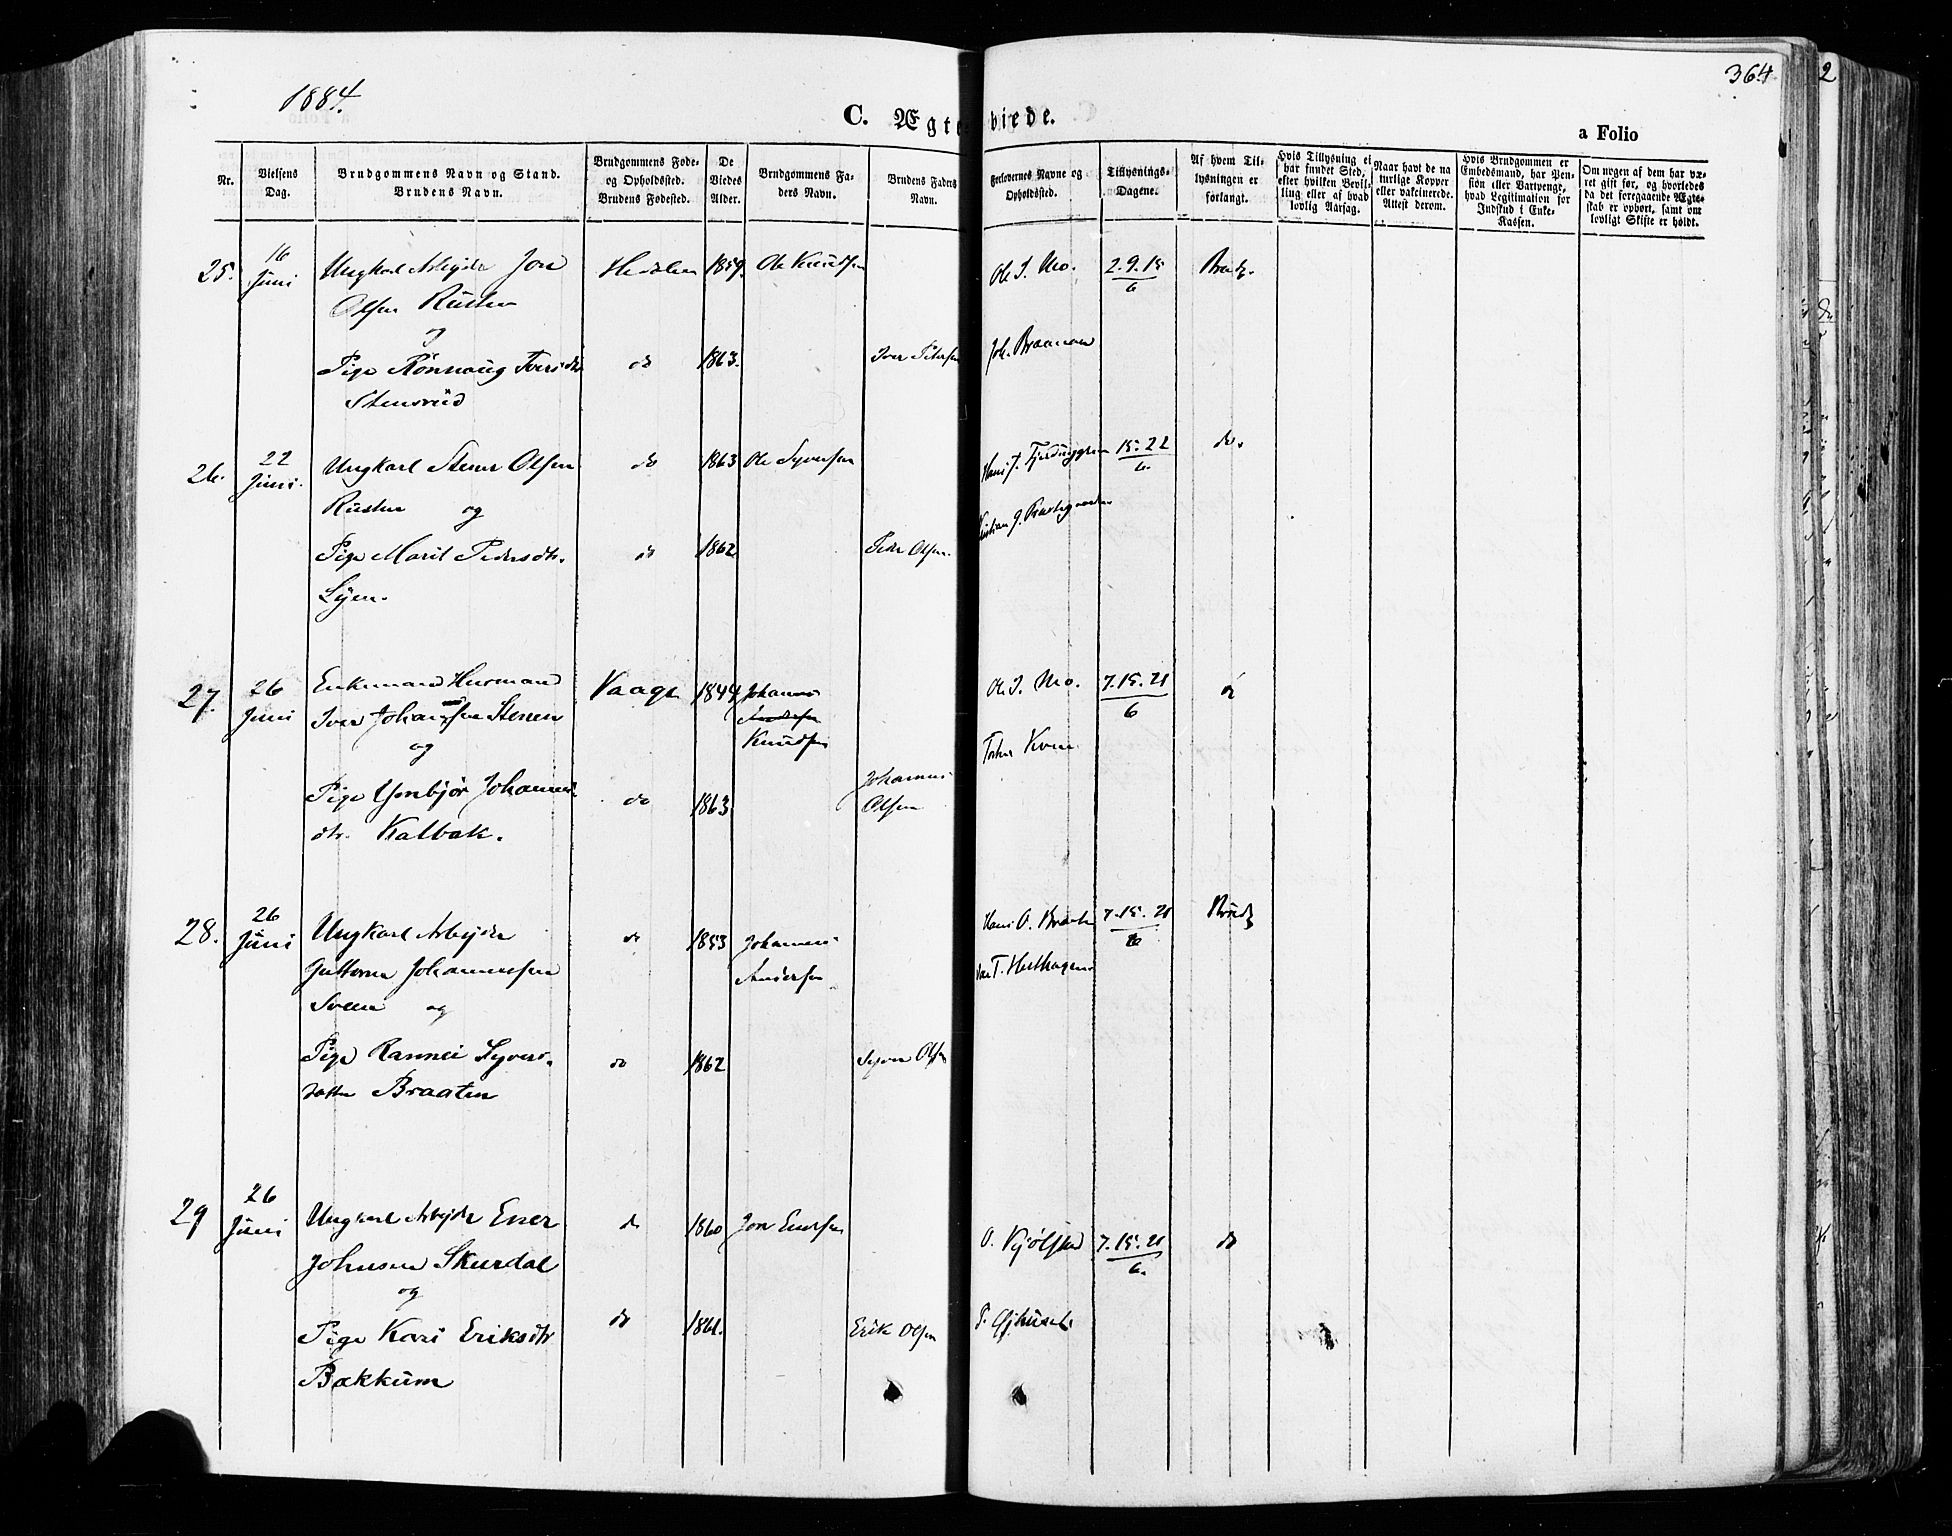 1884.
364
2
C. Ægteviede.
a Folio
Nr.
Vielsens Dag.
Brudgommens Navn og Stand. Brudens Navn.
Brudgommens Føde- og Opholdssted. Brudens Fødested.
De Viedes Alder.
Brudgommens Faders Navn.
Brudens Faders Navn.
Forlovernes Navne og Opholdssted.
Tillysnings-Dagene.
Af hvem Tillysningen er forlangt.
Hvis Tillysning ei har fundet Sted, efter hvilken Bevilling eller af hvad lovlig Aarsag.
Naar havt de naturlige Kopper eller vakcinerede. Attest derom.
Hvis Brudgommen er Embedsmand, har Pension eller Vartpenge, hvad Legitimation for Indskud i Enke-Kassen.
Om nogen af dem har været gift før, og hvorledes da det foregaaende Ægteskab er ophørt, samt om lovligt Skifte er holdt.
25.
16 Juni
Ungkarl Arbejder Jon
Olsen Rusten
og
Pige Rønnaug Iversdtr
Stensrud
Hedalen
do
1859.
1863.
Ole Knudsen
Iver Petersen
Ole I. Mo.
Joh. Braanaa
2.9.15
6
Brudg.
26.
22 Juni.
Ungkarl Stener Olsen
Rusten og
Pige Marit Pedersdtr.
Lyen.
do
do
1863
1862
Ole Syversen
Peder Olsen.
15.22
6.
do.
27.
26 Juni
Enkemand Husmand
Iver Johannsen Stenen
og
Pige Johannes-
dtr. Kalbak.
Vaage
do
1844
1863
Johannes
Knudsen
Johannes
Olsen
Ole I. Mo.
7.15.21
6
28.
26 Juni
Ungkarl Arbejder
Guttorm Johannessen
Sveen og
Pige Rannei Syvers-
datter Braaten
do
do
1853
1862
Johannes
Andersen
Syver Olsen
Hans O. Braaten
7.15.21
6
Brudg
29
26 Juni
Ungkarl Arbejder Ener
Johnsen Skurdal
og
Pige Kari Eriksdtr
Bakkum
do
do
1860
1861.
Jon Enersen
Erik Olsen
O. Kjølstad
7.15.21
6.
do